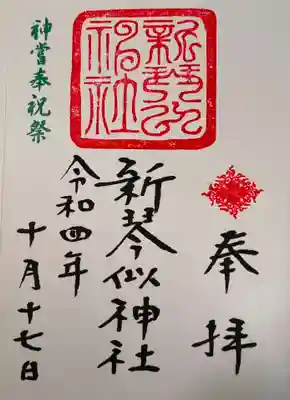 奉拝
新琴似神社
新琴似神社
令和四年
十月十七日
神嘗奉祝祭